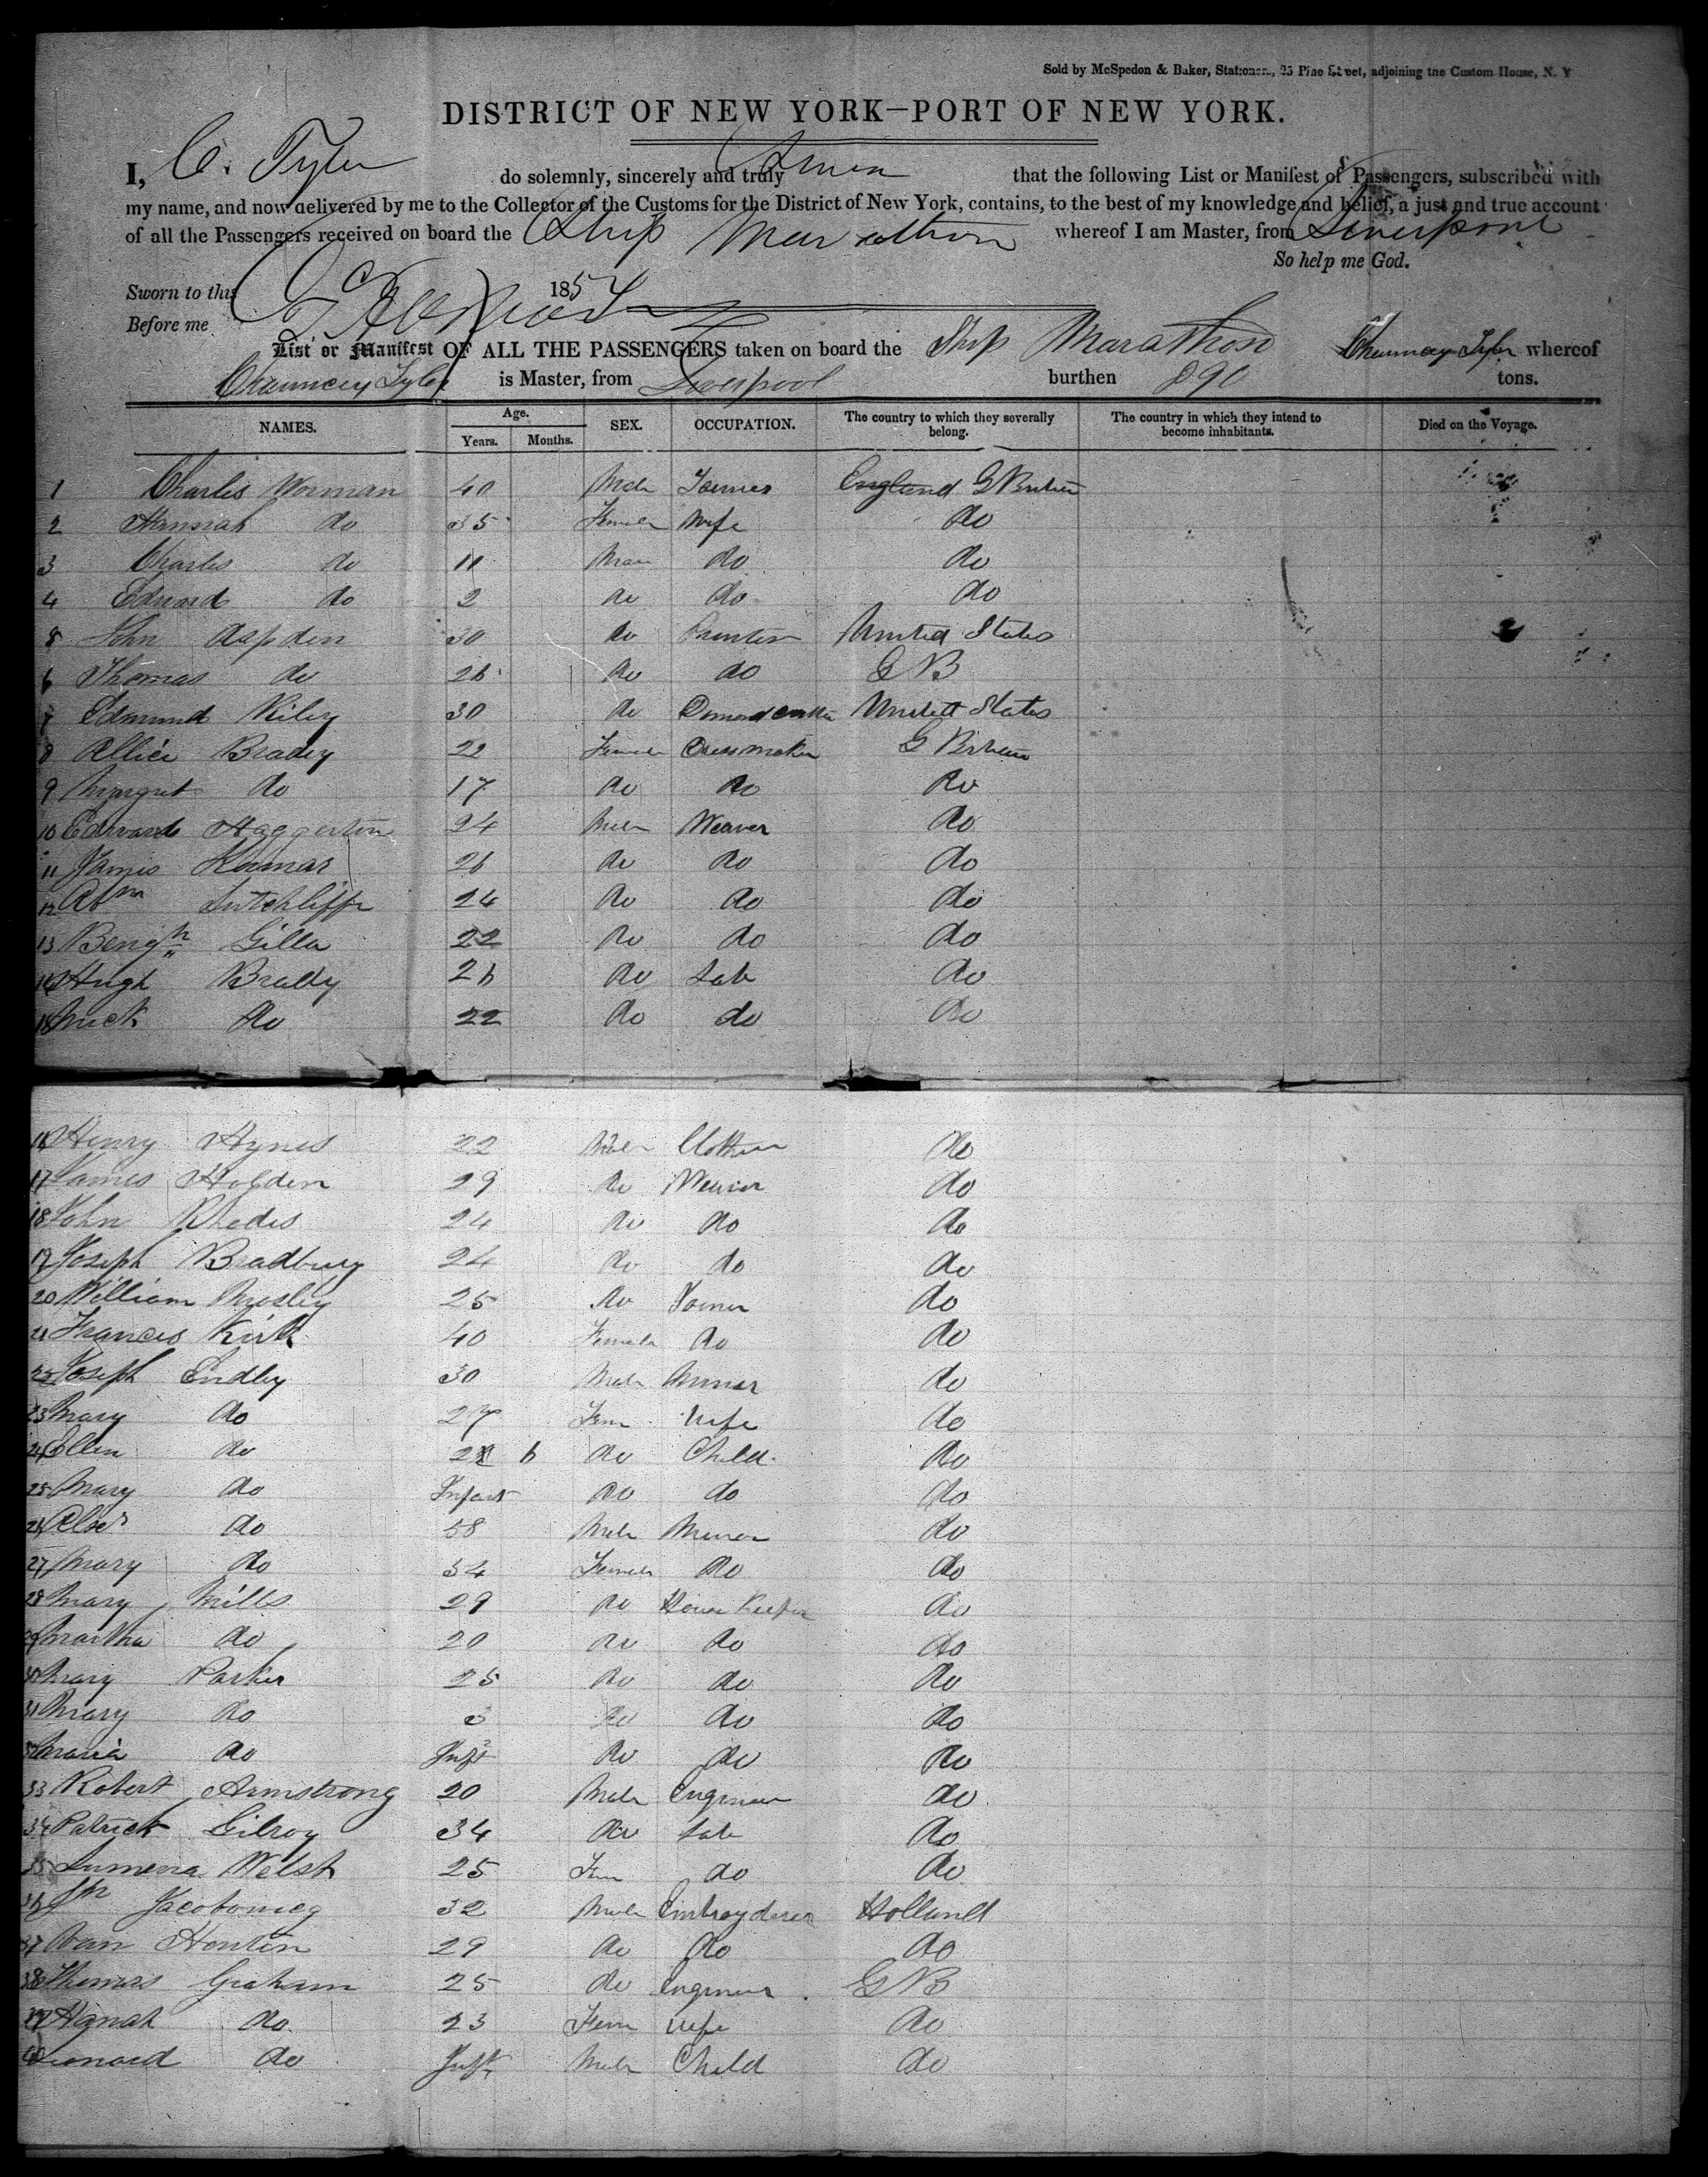 Sold by McSpedon & Baker, Stationers, 25 Pine Street, adjoining the Custom House, N. Y
DISTRICT OF NEW YORK—PORT OF NEW YORK.
I, C. Tyler do solemnly, sincerely and truly Swear that the following List or Manifest of Passengers, subscribed with
my name, and now delivered by me to the Collector of the Customs for the District of New York, contains, to the best of my knowledge and belief, a just and true account
of all the Passengers received on board the Ship Marathon whereof I am Master, from Liverpool
So help me God.
Sworn to this 1854
Before me
List or Manifest OF ALL THE PASSENGERS taken on board the Ship Marathon Chauncey Tyler whereof
Chauncey Tyler is Master, from Liverpool burthen 890 tons.
NAMES. Age. Years. Months. SEX. OCCUPATION. The country to which they severally belong. The country in which they intend to become inhabitants. Died on the Voyage.
1 Charles Worman 40 Male England G Britain
2 Hannah do 35 Female Wife do
3 Charles do 11 Male do do
4 Edward do 2 do do do
5 John Aspden 30 do Painter United States
6 Thomas do 26 do do G B
7 Edmund Riley 30 do United States
8 Allice Brady 22 Female Dressmaker G Britain
9 Margret do 17 do do do
10 Edward Haggerton 24 Male Weaver do
11 James 26 do do do
12 Abm Sutchliffe 24 do do do
13 Benjn Gilla 22 do do do
14 Hugh Brady 26 do Lab do
15 Mick do 22 do do do
16 Henry Hynes 22 Male Clothier do
17 James Holden 29 do Weaver do
18 John Rhodes 24 do do do
19 Joseph Bradbury 24 do do do
20 William Mosley 25 do Joiner do
21 Frances Kirk 40 Female do do
22 Joseph Endley 30 Male Miner do
23 Mary do 27 Fem Wife do
24 Ellen do 2 6 do Child do
25 Mary do Infant do do do
26 do 58 Male Miner do
27 Mary do 54 Female do do
28 Mary Mills 29 do House Keeper do
29 Martha do 20 do do do
30 Mary Parker 25 do do do
31 Mary do 3 do do do
32 Maria do Inft do do do
33 Robert Armstrong 20 Male Engineer do
34 Patrick Gilroy 34 do Lab do
35 Welsh 25 Fem do do
36 Jn 32 Male Embroyderer Holland
37 Van Houten 29 do do do
38 Thomas Graham 25 do Engineer G B
39 Hanah do 23 Fem Wife do
40 Leonard do Inft Male Child do